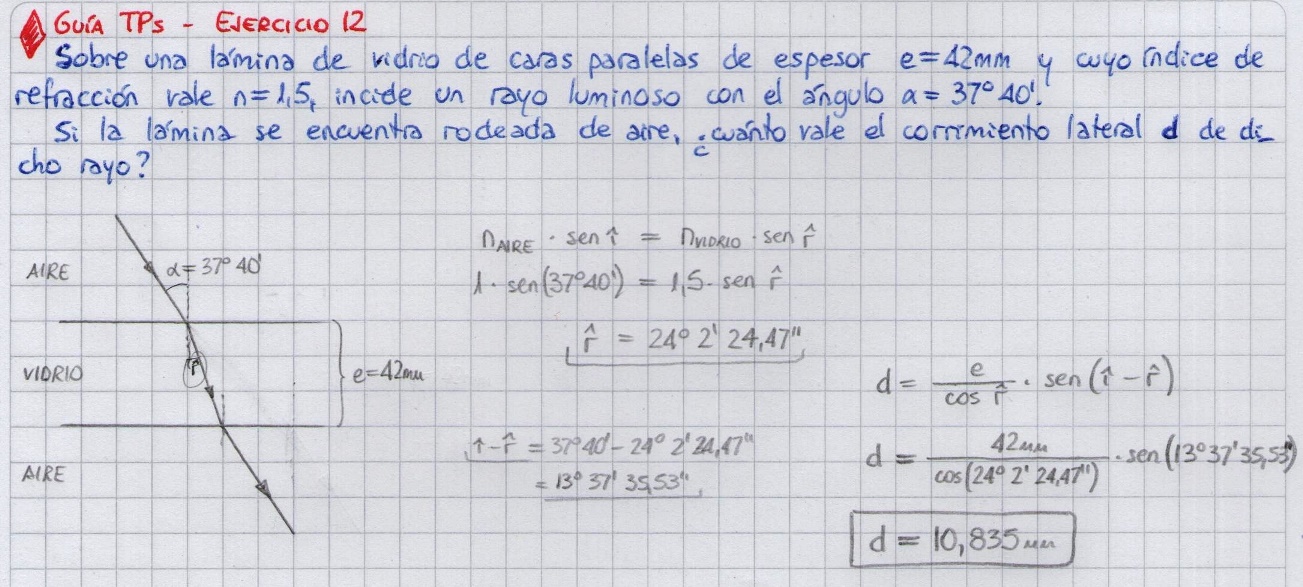 GUÍA TPs - EJERCICIO 12
Sobre una lámina de vidrio de caras paralelas de espesor e=42mm y cuyo índice de
refracción vale n=1,5, incide un rayo luminoso con el ángulo α = 37° 40'.
Si la lámina se encuentra rodeada de aire, ¿cuánto vale el corrimiento lateral d de di_
cho rayo?
n_AIRE · sen î = n_VIDRIO · sen r̂
AIRE
α = 37° 40'
1 · sen(37°40') = 1,5 · sen r̂
r̂ = 24° 2' 24,47"
VIDRIO
r̂
e=42mm
d = e / cos r̂ · sen (î - r̂)
î - r̂ = 37°40' - 24° 2' 24,47"
= 13° 37' 35,53"
d = 42mm / cos(24° 2' 24,47") · sen(13°37'35,53")
AIRE
d = 10,835 mm